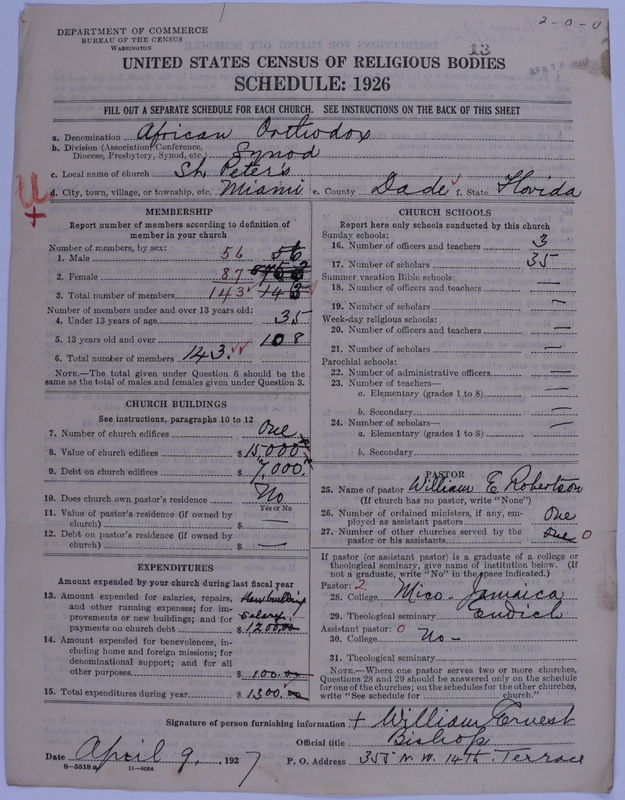 2-0-0
DEPARTMENT OF COMMERCE
BUREAU OF THE CENSUS
WASHINGTON
13
UNITED STATES CENSUS OF RELIGIOUS BODIES
SCHEDULE: 1926
FILL OUT A SEPARATE SCHEDULE FOR EACH CHURCH. SEE INSTRUCTIONS ON THE BACK OF THIS SHEET
a. Denomination African Orthodox
b. Division (Association, Conference,
Diocese, Presbytery, Synod, etc.) Synod
c. Local name of church St. Peter's
d. City, town, village, or township, etc. Miami e. County Dade f. State Florida
MEMBERSHIP
Report number of members according to definition of
member in your church
Number of members, by sex:
1. Male 56 56
2. Female 87
3. Total number of members 143 143
Number of members under and over 13 years old:
4. Under 13 years of age 35
5. 13 years old and over 108
6. Total number of members 143.
NOTE.—The total given under Question 6 should be the
same as the total of males and females given under Question 3.
CHURCH BUILDINGS
See instructions, paragraphs 10 to 12
7. Number of church edifices One
8. Value of church edifices $ 15,000
9. Debt on church edifices $ 7,000.
10. Does church own pastor's residence No
Yes or No
11. Value of pastor's residence (if owned by
church) $ —
12. Debt on pastor's residence (if owned by
church) $ —
EXPENDITURES
Amount expended by church during last fiscal year
13. Amount expended for salaries, repairs, New building
and other running expenses; for im-
provements or new buildings; and for salary.
payments on church debt $ 1200.00
14. Amount expended for benevolences, in-
cluding home and foreign missions; for
denominational support; and for all
other purposes $ 100.00
15. Total expenditures during year $ 1300.00
CHURCH SCHOOLS
Report here only schools conducted by this church
Sunday schools:
16. Number of officers and teachers 3
17. Number of scholars 35
Summer vacation Bible schools:
18. Number of officers and teachers —
19. Number of scholars —
Week-day religious schools:
20. Number of officers and teachers —
21. Number of scholars —
Parochial schools:
22. Number of administrative officers —
23. Number of teachers—
a. Elementary (grades 1 to 8) —
b. Secondary —
24. Number of scholars—
a. Elementary (grades 1 to 8) —
b. Secondary
PASTOR
25. Name of pastor William E Robertson
(If church has no pastor, write "None")
26. Number of ordained ministers, if any, em-
ployed as assistant pastors One
27. Number of other churches served by the
pastor or his assistants One 0
If pastor (or assistant pastor) is a graduate of a college or
theological seminary, give name of institution below. (If
not a graduate, write "No" in the space indicated.)
Pastor: 2
28. College Mico - Jamaica
29. Theological seminary Endich
Assistant pastor: 0
30. College No -
31. Theological seminary
NOTE.—Where one pastor serves two or more churches,
Questions 28 and 29 should be answered only on the schedule
for one of the churches; on the schedules for the other churches,
write "See schedule for church."
Signature of person furnishing information + William Ernest
Official title Bishop
Date April 9, 1927 P. O. Address 355 N.W. 14th. Terrace
8-5518 a 11-4064